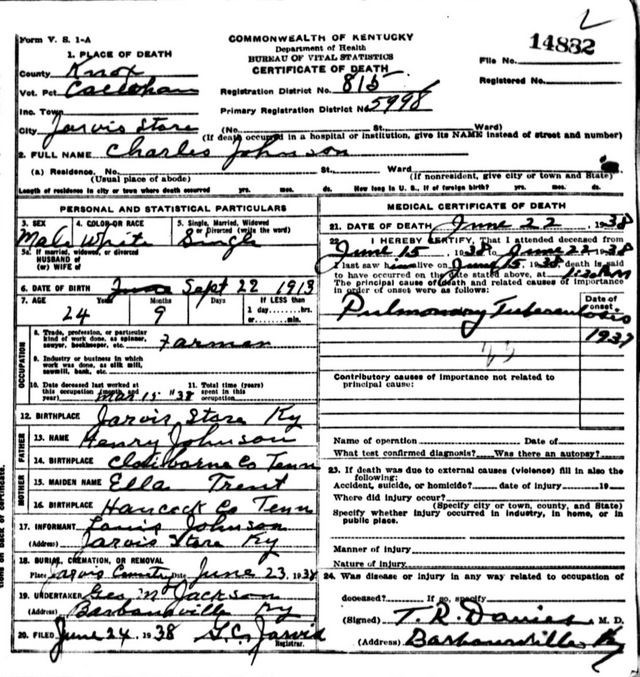 Form V. S. 1-A
COMMONWEALTH OF KENTUCKY
Department of Health
BUREAU OF VITAL STATISTICS
CERTIFICATE OF DEATH
File No. 14832
Registered No.
1. PLACE OF DEATH
County Knox
Vot. Pct Callohan
Inc. Town
City Jarvis Store
Registration District No. 815
Primary Registration District No. 5998
(No. St. Ward)
(If death occurred in a hospital or institution, give its NAME instead of street and number)
2. FULL NAME Charles Johnson
(a) Residence. No. St., Ward
(Usual place of abode) (If nonresident, give city or town and State)
Length of residence in city or town where death occurred yrs. mos. ds. How long in U. S., if of foreign birth? yrs. mos. ds.
PERSONAL AND STATISTICAL PARTICULARS
3. SEX Male
4. COLOR OR RACE White
5. Single, Married, Widowed or Divorced (write the word) Single
5a. If married, widowed, or divorced
HUSBAND of
(or) WIFE of
6. DATE OF BIRTH Sept 22 1913
7. AGE 24 Years 9 Months Days If LESS than
1 day, hrs.
or min.
OCCUPATION
8. Trade, profession, or particular
kind of work done, as spinner,
sawyer, bookkeeper, etc. Farmer
9. Industry or business in which
work was done, as silk mill,
sawmill, bank, etc.
10. Date deceased last worked at
this occupation (month and
year) Mar 15 38
11. Total time (years)
spent in this
occupation
12. BIRTHPLACE Jarvis Store Ky
FATHER
13. NAME Henry Johnson
14. BIRTHPLACE Claiborne Co Tenn
MOTHER
15. MAIDEN NAME Ella Trent
16. BIRTHPLACE Hancock Co Tenn
17. INFORMANT Louis Johnson
(Address) Jarvis Store Ky
18. BURIAL, CREMATION, OR REMOVAL
Place Jarvis Date June 23, 1938
19. UNDERTAKER Geo M Jackson
(Address) Barbourville Ky
20. FILED June 24 1938 G. C. Jarvis
Registrar.
MEDICAL CERTIFICATE OF DEATH
21. DATE OF DEATH June 22, 1938
22. I HEREBY CERTIFY, That I attended deceased from
June 15, 1938 to June 22, 1938
I last saw him alive on June 15, 1938, death is said
to have occurred on the date stated above, at m
The principal cause of death and related causes of importance
in order of onset were as follows:
Date of onset
Pulmonary Tuberculosis
1937
Contributory causes of importance not related to
principal cause:
Name of operation Date of
What test confirmed diagnosis? Was there an autopsy?
23. If death was due to external causes (violence) fill in also the
following:
Accident, suicide, or homicide? date of injury 19
Where did injury occur?
(Specify city or town, county, and State)
Specify whether injury occurred in industry, in home, or in
public place.
Manner of injury
Nature of injury
24. Was disease or injury in any way related to occupation of
deceased? If so, specify
(Signed) T. R. Davies M. D.
(Address) Barbourville Ky